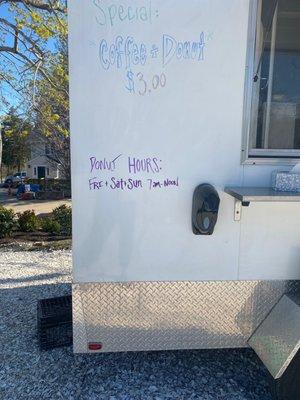 Special:
"Coffee + Donut"
$3.00
DONUT HOURS:
FRI + Sat + Sun 7am-Noon